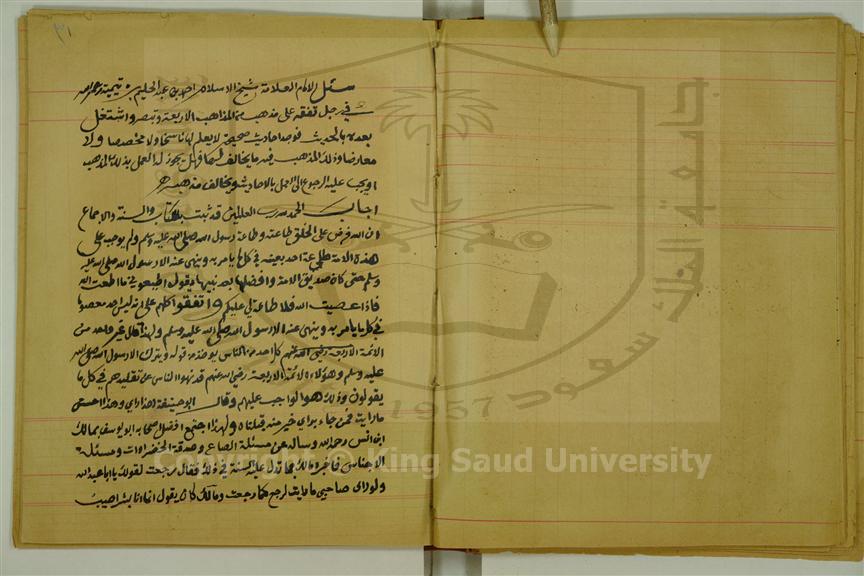 ٣١
سئل الامام العلامة شيخ الاسلام احمد بن عبد الحليم بن تيمية رحمه الله
في رجل تفقه على مذهب من المذاهب الاربعة وتبصر واشتغل
بعده بالحديث فوجد احاديث صحيحة لا يعلم لها ناسخا ولا مخصصا ولا
معارضا وذلك المذهب فيه ما يخالف لها فهل يجوز له العمل بذلك المذهب
او يجب عليه الرجوع الى العمل بالاحاديث ويخالف مذهبه
اجاب الحمد لله رب العالمين قد ثبت بالكتاب والسنة والاجماع
ان الله فرض على الخلق طاعته وطاعة رسول الله صلى الله عليه وسلم ولم يوجب على
هذه الامة طاعة احد بعينه في كل ما يامر به وينهى عنه الا رسول الله صلى الله عليه
وسلم حتى كان صديق الامة وافضلها بعد نبيها يقول اطيعوني ما اطعت الله
فاذا عصيت الله فلا طاعة لي عليكم واتفقوا كلهم على انه ليس احد معصوما
في كل ما يامر به وينهى عنه الا رسول الله صلى الله عليه وسلم ولهذا قال غير واحد من
الائمة الاربعة رضي الله عنهم كل احد من الناس يوخذ من قوله ويترك الا رسول الله صلى الله
عليه وسلم وهولاء الائمة الاربعة رضي الله عنهم قد نهوا الناس عن تقليدهم في كل ما
يقولون وذلك هو الواجب عليهم وقال ابو حنيفة هذا راي وهذا احسن
ما رايت فمن جاء براي خير منه قبلناه ولهذا اجتمع افضل اصحابه ابو يوسف بمالك
ابن انس رحمه الله وساله عن مسئلة الصاع وصدقة الخضراوات ومسئلة
الاجناس فاخبره مالك بما تدل عليه السنة في ذلك فقال رجعت لقولك يا ابا عبد الله
ولو راى صاحبي ما رايت لرجع كما رجعت ومالك كان يقول انما انا بشر اصيب
جامعة الملك سعود
1957
Copyright © King Saud University